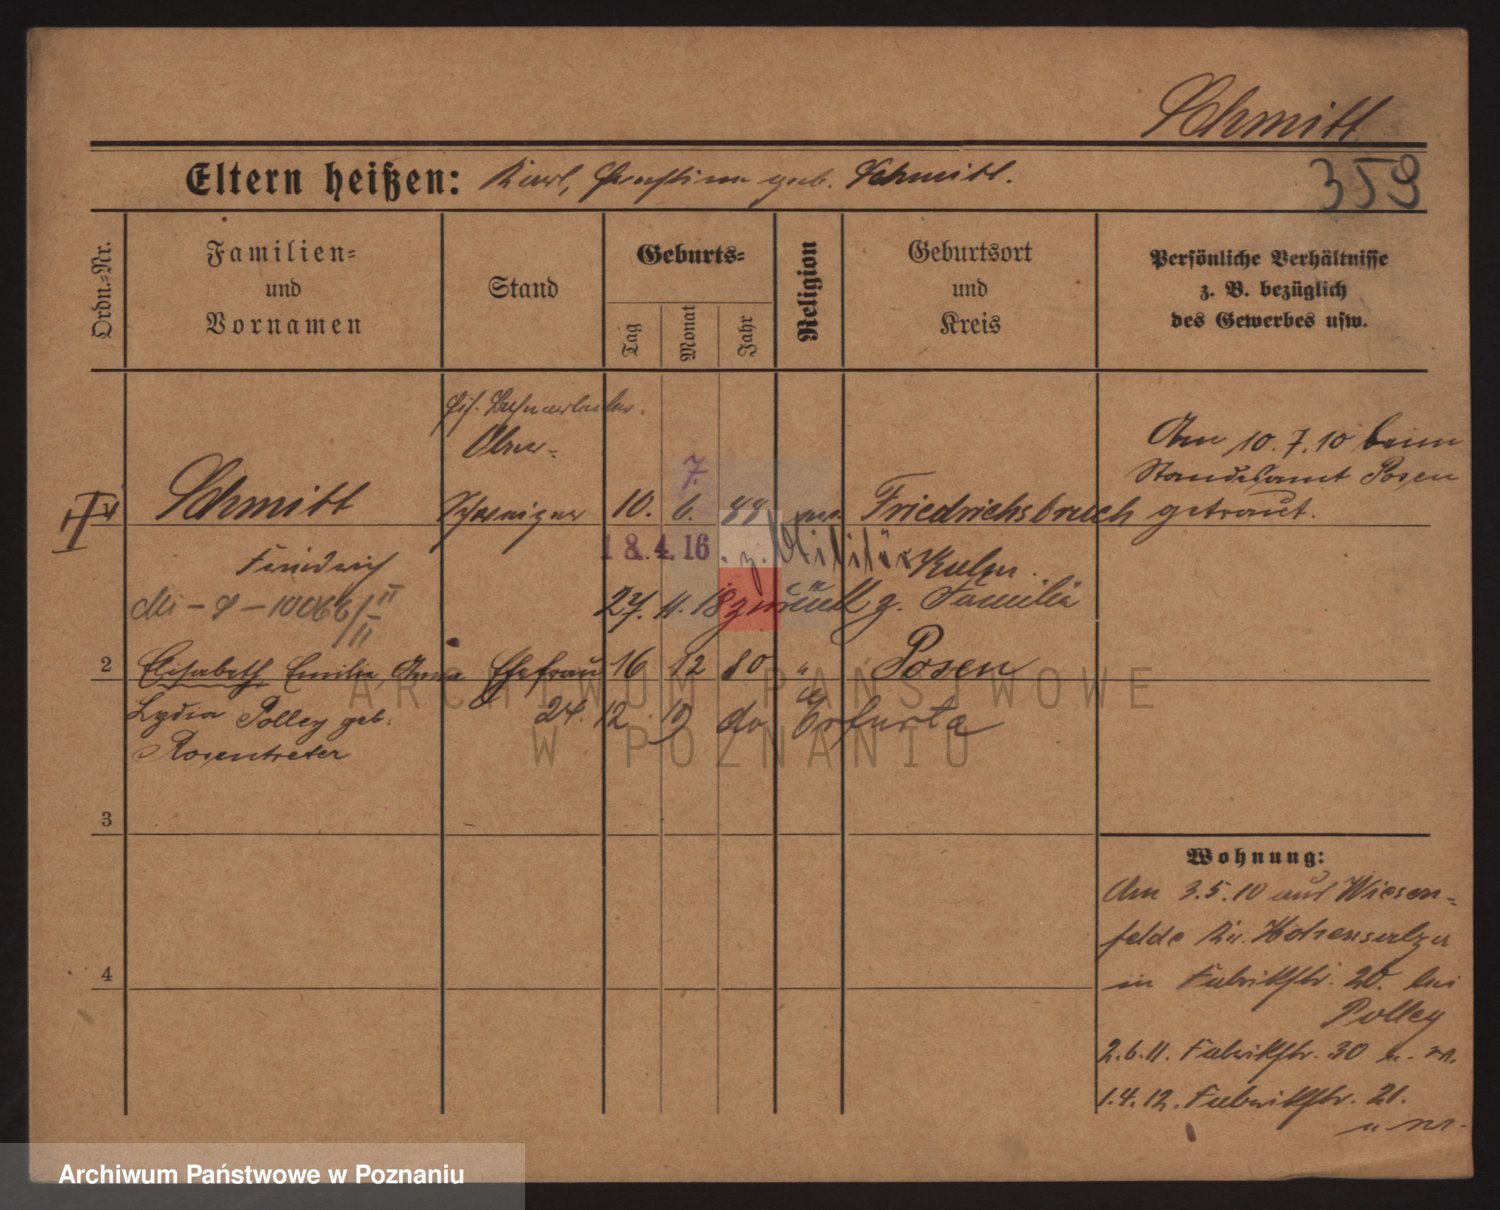 Schmitt
Eltern heißen: Karl, Ernstine geb. Schmitt.
359
Ordn.=Nr.
Familien=
und
Vornamen
Stand
Geburts=
Tag
Monat
Jahr
Religion
Geburtsort
und
Kreis
Persönliche Verhältnisse
z. B. bezüglich
des Gewerbes usw.
Ober=
Am 10.7.10 beim
Standesamt Posen
getraut.
Schmitt
10. 6. 88
7.
Friedrichsbruch
18.4.16 z. Militär
Friedrich
Kulm.
27. 11. 18 zurück z. Familie
2 Elisabeth Emilie Anna Ehefrau 16 12 80 " Posen
Lydia Polley geb.
24. 12. 19 do Erfurta
Rosentreter
3
4
Wohnung:
Am 3.5.10 aus Wiesen=
felde Kr. Hohensalza
in Fabrikstr. 20. bei
Polley
2.6.11. Fabrikstr. 30
1.4.12. Fabrikstr. 21.
ARCHIWUM PAŃSTWOWE
W POZNANIU
Archiwum Państwowe w Poznaniu